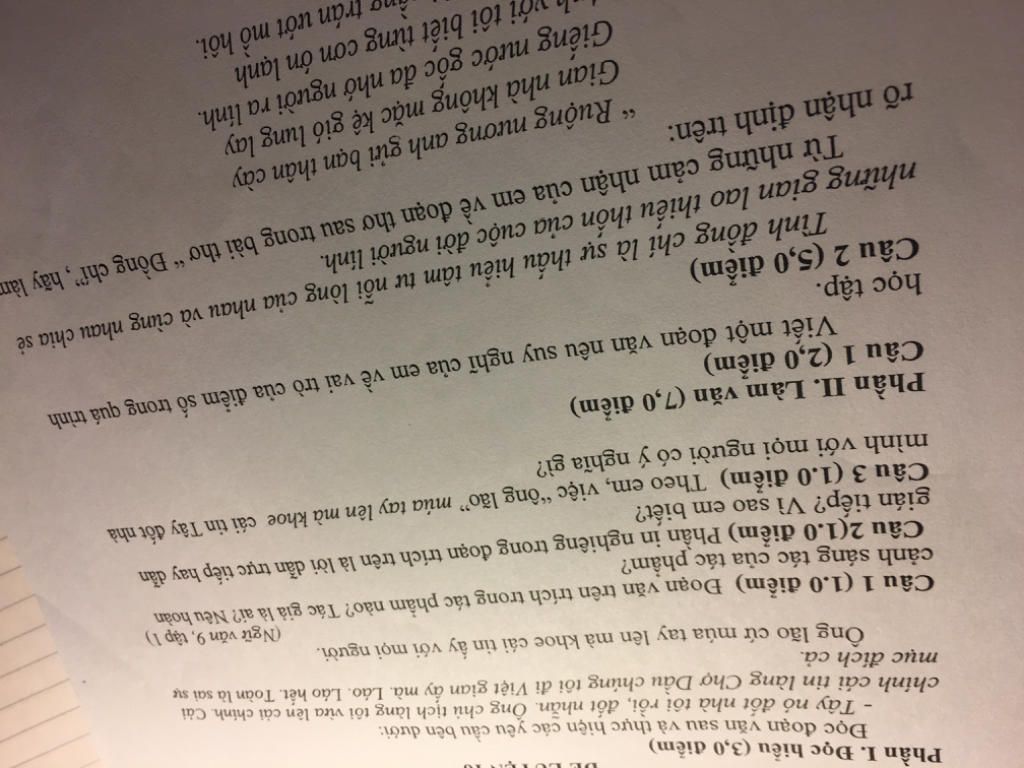 ĐỀ LUYỆN
Phần I. Đọc hiểu (3,0 điểm)
Đọc đoạn văn sau và thực hiện các yêu cầu bên dưới:
- Tây nó đốt nhà tôi rồi, đốt nhẵn. Ông chủ tịch làng tôi vừa lên cải chính. Cải
chính cái tin làng Chợ Dầu chúng tôi đi Việt gian ấy mà. Láo. Láo hết. Toàn là sai sự
mục đích cả.
Ông lão cứ múa tay lên mà khoe cái tin ấy với mọi người.
(Ngữ văn 9, tập 1)
Câu 1 (1.0 điểm) Đoạn văn trên trích trong tác phẩm nào? Tác giả là ai? Nêu hoàn
cảnh sáng tác của tác phẩm?
Câu 2(1.0 điểm) Phần in nghiêng trong đoạn trích trên là lời dẫn trực tiếp hay dẫn
gián tiếp? Vì sao em biết?
Câu 3 (1.0 điểm) Theo em, việc “ông lão” múa tay lên mà khoe cái tin Tây đốt nhà
mình với mọi người có ý nghĩa gì?
Phần II. Làm văn (7,0 điểm)
Câu 1 (2,0 điểm)
Viết một đoạn văn nêu suy nghĩ của em về vai trò của điểm số trong quá trình
học tập.
Câu 2 (5,0 điểm)
Tình đồng chí là sự thấu hiểu tâm tư nỗi lòng của nhau và cùng nhau chia sẻ
những gian lao thiếu thốn của cuộc đời người lính.
Từ những cảm nhận của em về đoạn thơ sau trong bài thơ “ Đồng chí”, hãy làm
rõ nhận định trên:
“ Ruộng nương anh gửi bạn thân cày
Gian nhà không mặc kệ gió lung lay
Giếng nước gốc đa nhớ người ra lính.
với tôi biết từng cơn ớn lạnh
trán ướt mồ hôi.